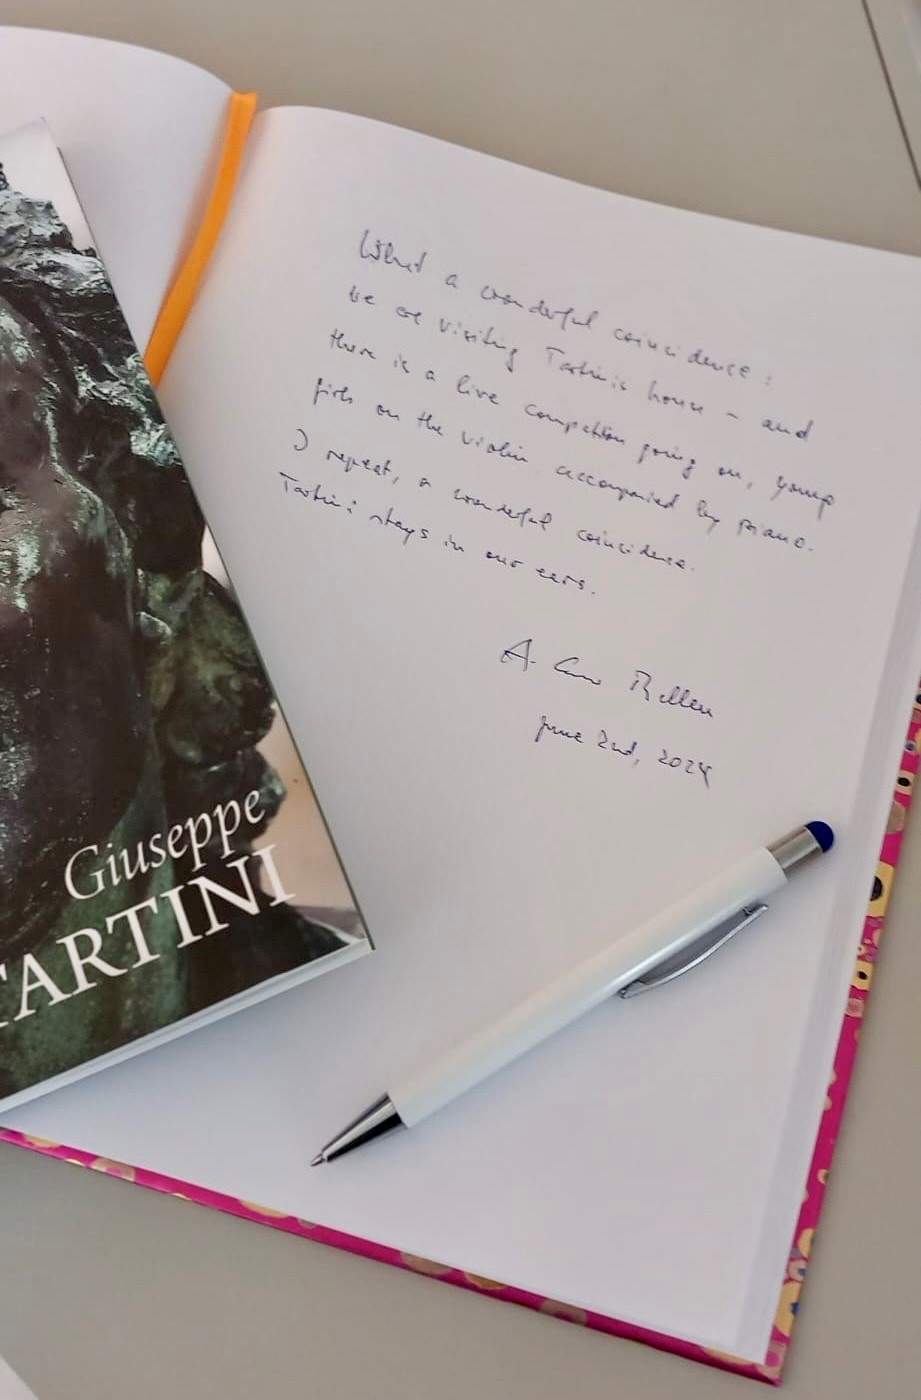 What a wonderful coincidence:
We are visiting Tartini's house – and
there is a live competition going on, young
girls on the violin accompanied by piano.
I repeat, a wonderful coincidence.
Tartini stays in our ears.
A.
June 2nd, 2024
Giuseppe
TARTINI